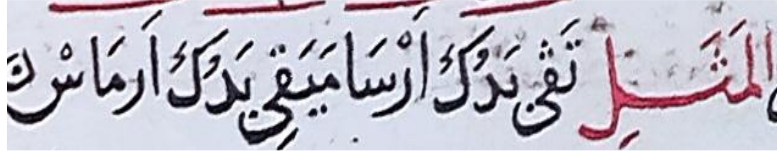 المَثَلِ تَڢِي يَدُكَ اَرْسَا مَيَقِي يَدُكَ اَرمَاسْ كَ